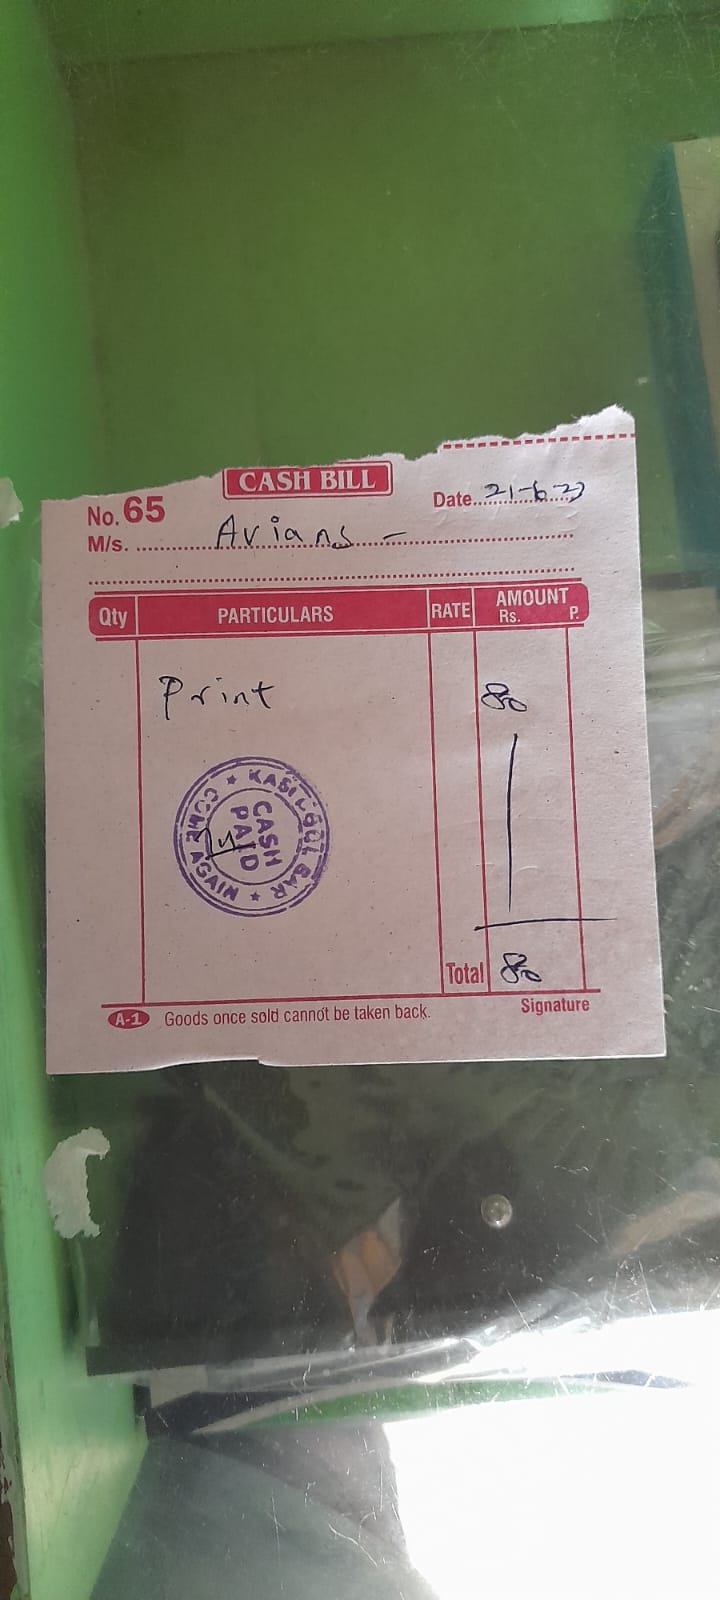 CASH BILL
No. 65
Date 21-6-23
M/s. Avians -
Qty PARTICULARS RATE AMOUNT
Rs. P.
Print 80
COOL BAR ★ COME AGAIN ★
CASH
PAID
Total 80
A-1 Goods once sold cannot be taken back.
Signature